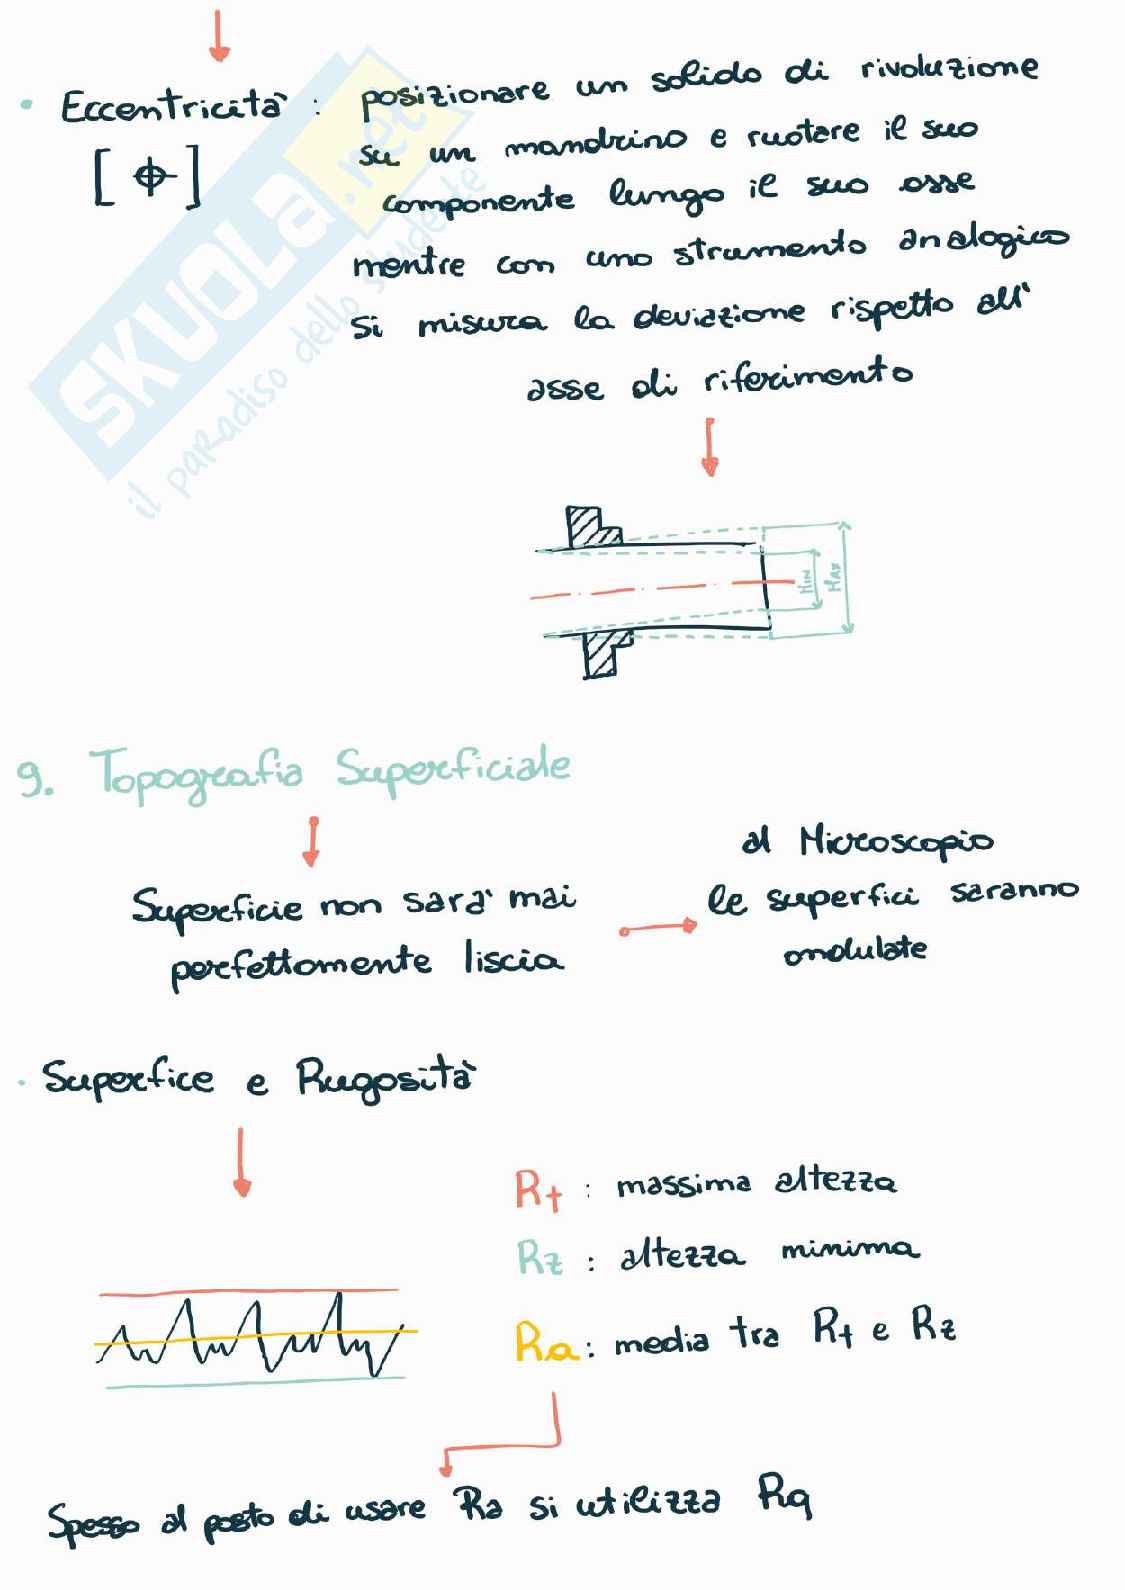 • Eccentricità : posizionare un solido di rivoluzione
[ ⌖ ] su un mandrino e ruotare il suo
componente lungo il suo asse
mentre con uno strumento analogico
si misura la deviazione rispetto all'
asse di riferimento
MIN
MAX
9. Topografia Superficiale
Superficie non sarà mai
perfettamente liscia
al Microscopio
le superfici saranno
ondulate
• Superfice e Rugosità
Rt : massima altezza
Rz : altezza minima
Ra : media tra Rt e Rz
Spesso al posto di usare Ra si utilizza Rq
SKUOLA.net
il paradiso dello studente